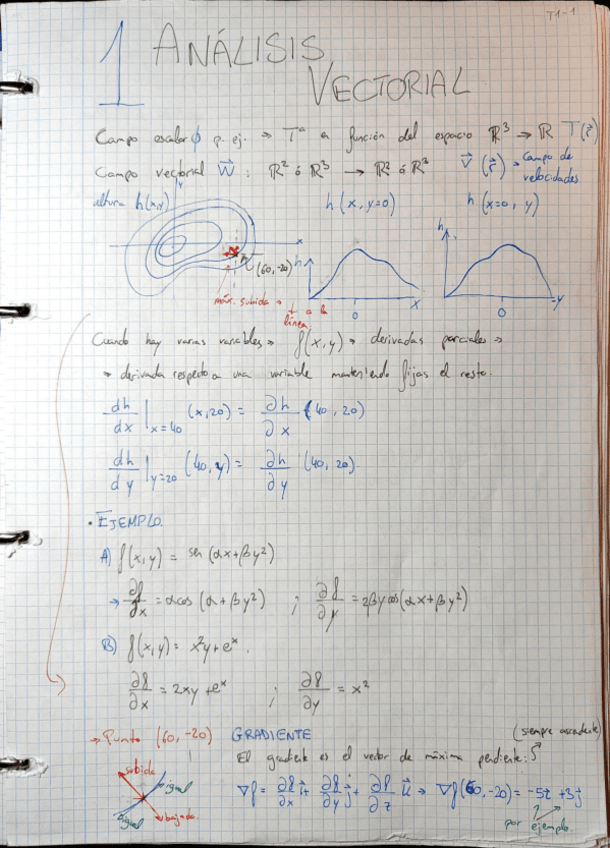 T1-1
1 ANÁLISIS
VECTORIAL
Campo escalar ϕ p. ej. → Tª en función del espacio ℝ³ → ℝ T(r⃗)
Campo vectorial W⃗ : ℝ² ó ℝ³ → ℝ² ó ℝ³ v⃗(r⃗) → Campo de
velocidades
altura h(x,y) h(x, y=0) h(x=0, y)
y x h h
(60,-20)
máx. subida → ⊥ a la
línea
0 x 0 y
Cuando hay varias variables → f(x,y) → derivadas parciales →
→ derivada respecto a una variable manteniendo fijas el resto.
dh/dx |x=40 (x,20) = ∂h/∂x (40,20)
dh/dy |y=20 (40,y) = ∂h/∂y (40,20)
• EJEMPLO
A) f(x,y) = sen (αx+βy²)
→ ∂f/∂x = αcos (α+βy²) ; ∂f/∂y = 2βy cos(αx+βy²)
B) f(x,y) = x²y+eˣ.
∂f/∂x = 2xy+eˣ ; ∂f/∂y = x²
→ Punto (60,-20) GRADIENTE (siempre ascendente)
El gradiente es el vector de máxima pendiente:
subida
igual
∇f = ∂f/∂x i⃗ + ∂f/∂y j⃗ + ∂f/∂z u⃗ → ∇f(60,-20) = -5i +3j
igual bajada
por ejemplo.